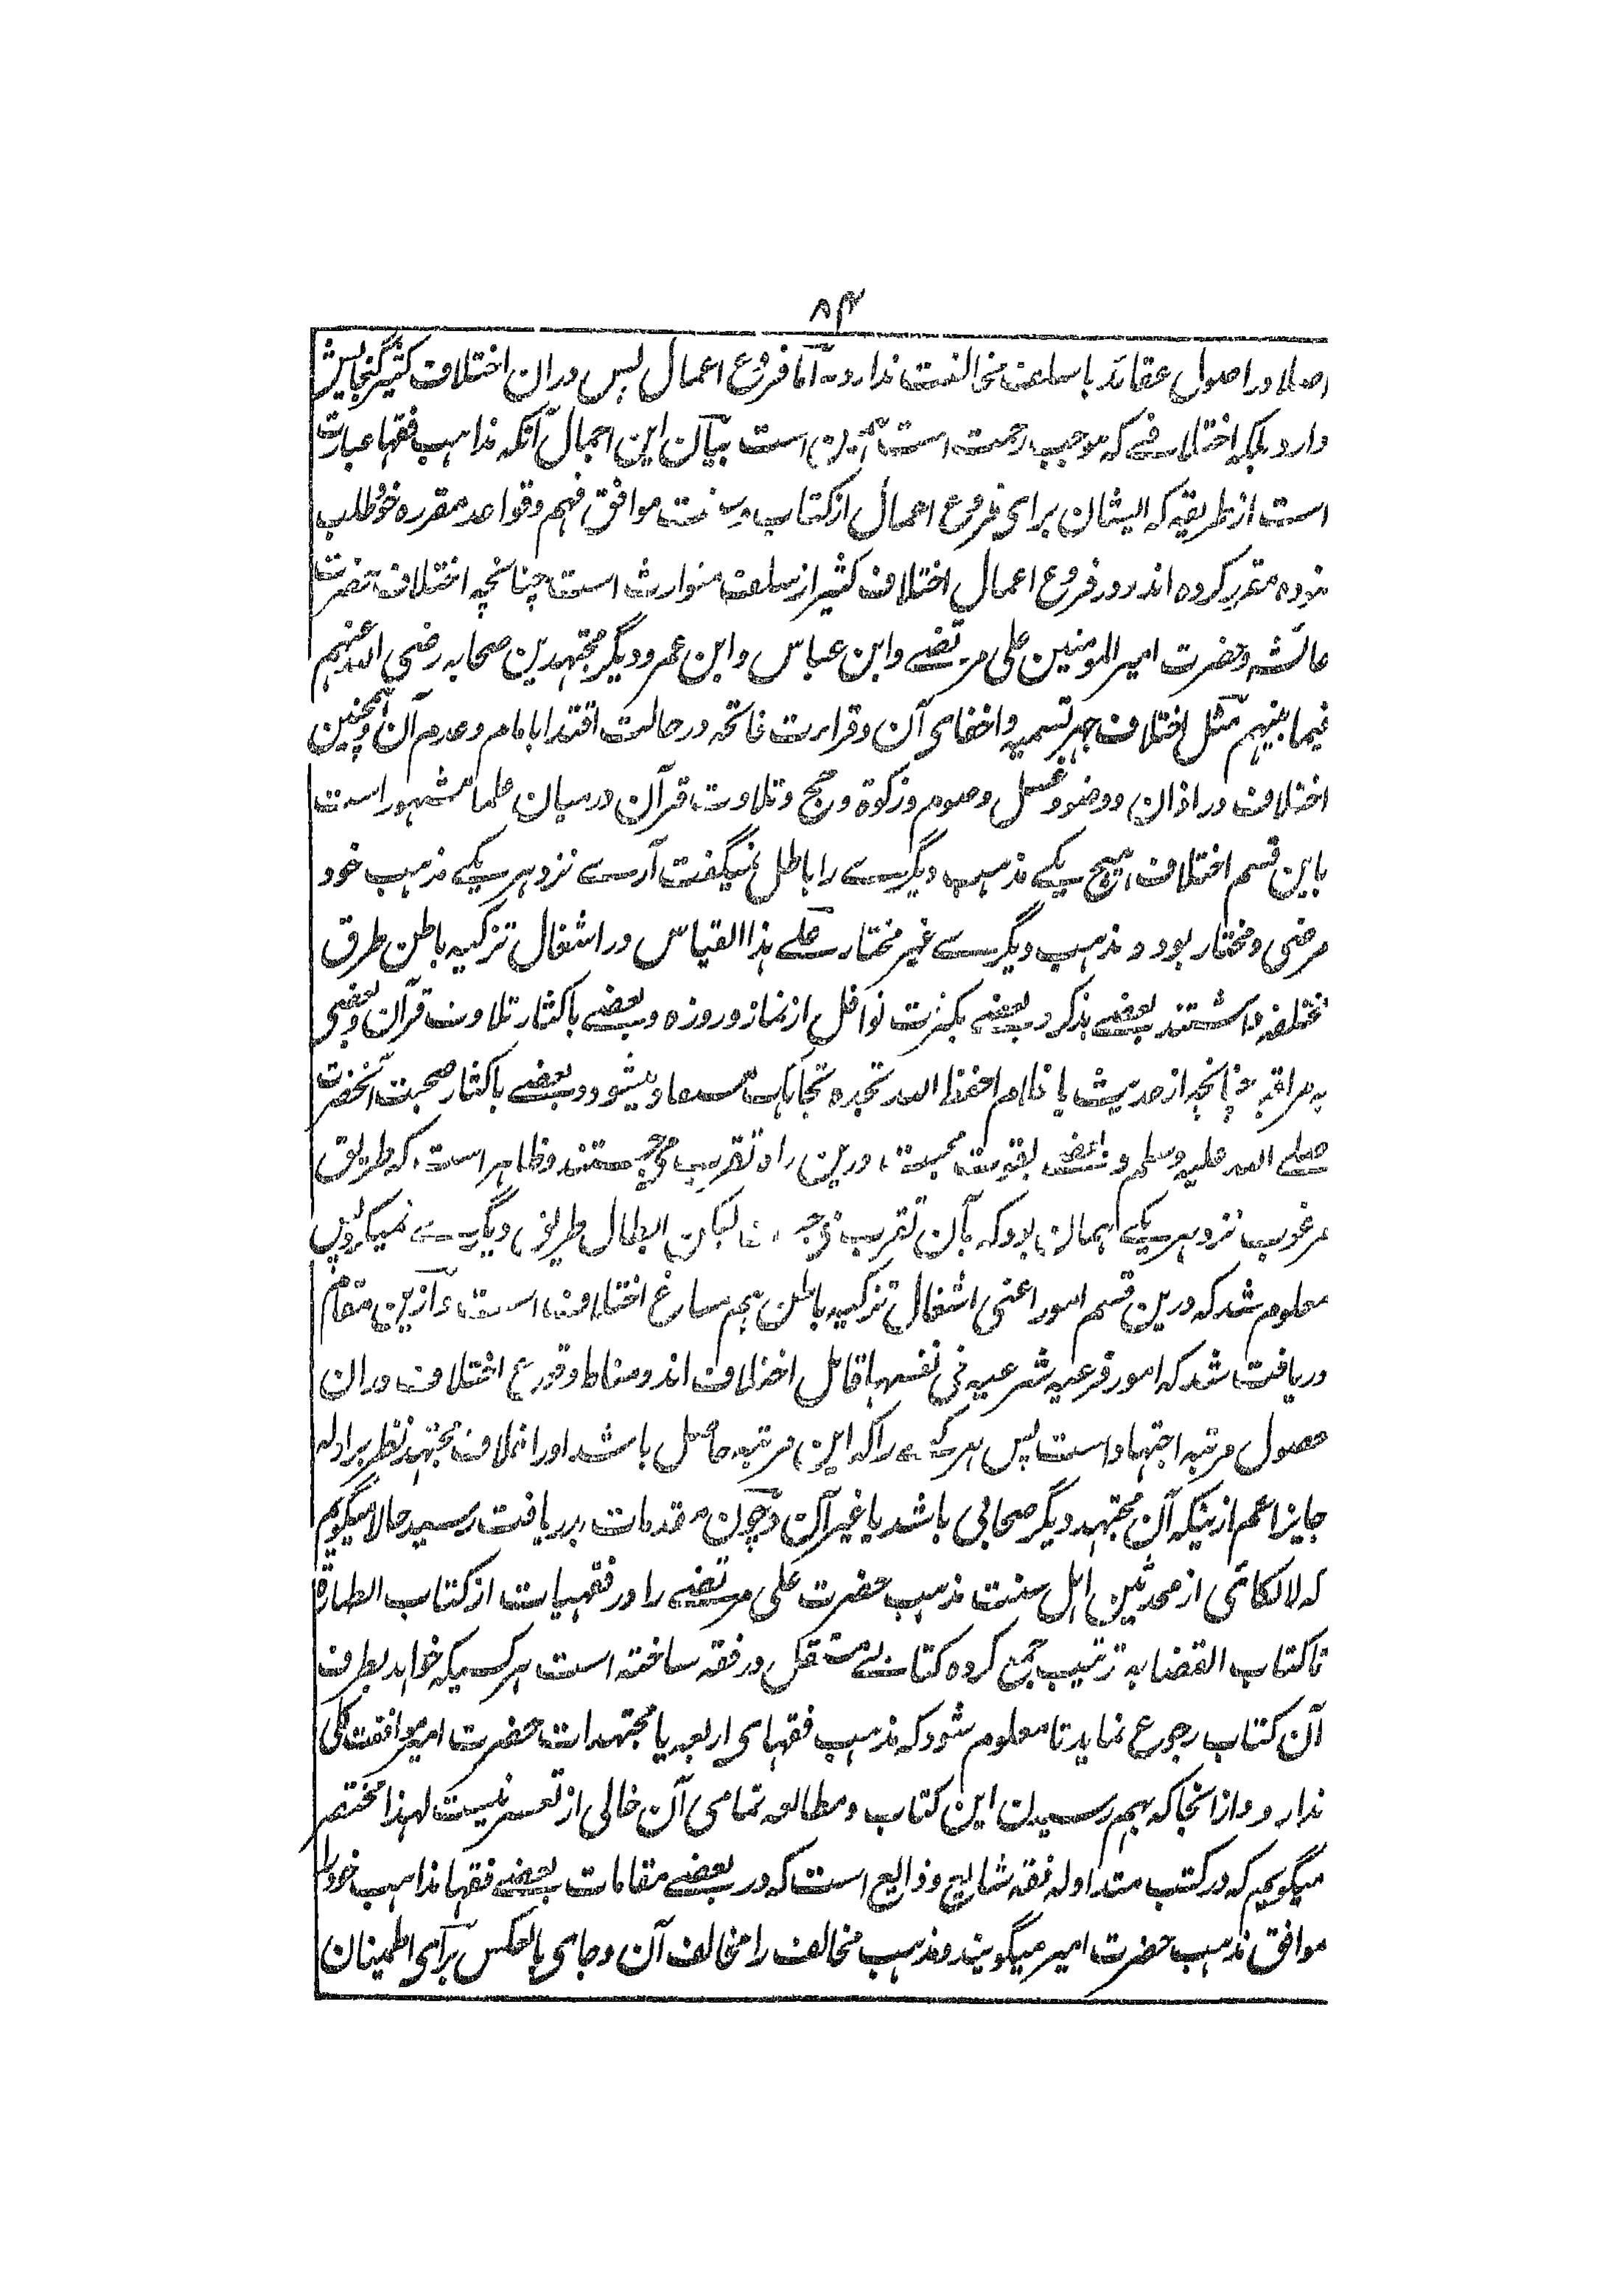 ۸۴
اصلا در اصول عقائد با سلف مخالفت ندارد اما فروع اعمال پس دران اختلاف کثیر گنجایش
دارد بلکه اختلافی که موجب رحمت است همین است بیان این اجمال آنکه مذاهب فقها عبارت
است از طریقه که ایشان برای فروع اعمال از کتاب و سنت موافق فهم و قواعد مقرره خود طلب
نموده مقرر کرده اند و در فروع اعمال اختلاف کثیر از سلف متوارث است چنانچه اختلاف حضرت
عائشه و حضرت امیر المومنین علی مرتضے و ابن عباس و ابن عمر و دیگر مجتهدین صحابه رضی الله عنهم
فیما بینهم مثل اختلاف جهر تسمیه و اخفای آن و قراءت فاتحه در حالت اقتدا بامام و عدم آن و همچنین
اختلاف در اذان و وضو و غسل و صوم و زکوة و حج و تلاوت قرآن درمیان علما مشهور است
باین قسم اختلاف هیچ یکے مذهب دیگرے را باطل نمیگفت آرے نزد هر یکے مذهب خود
مرضی و مختار بود و مذهب دیگرے غیر مختار علے هذا القیاس در اشغال تزکیه باطن طرق
مختلفه داشتند بعضے بذکر و بعضے بکثرت نوافل از نماز و روزه و بعضے باکثار تلاوت قرآن و بعضی
به مراقبه چنانچه از حدیث یا غلام احفظ الله تجده تجاهک مستفاد میشود و بعضے باکثار صحبت آنحضرت
صلے الله علیه وسلم و بعضے بقوت محبت درین راه تقرب می جستند و ظاهر است که طریق
مرغوب نزد هر یکے همان بود که بآن تقرب می لیکن ابطال طریق دیگرے نمیکرد پس
معلوم شد که درین قسم امور اعنی اشغال تزکیه باطن هم مساغ اختلاف است و ازین مقام
دریافت شد که امور فرعیه شرعیه فی نفسها قابل اختلاف اند و مناط وقوع اختلاف دران
حصول مرتبه اجتهاد است پس هر کسے را که این مرتبه حاصل باشد او را خلاف مجتهد نظر بر ادله
جایز اعم ازینکه آن مجتهد دیگر صحابی باشد یا غیر آن و چون مقدمات بدریافت رسید حالا میگویم
که لالکائی از محدثین اهل سنت مذهب حضرت علی مرتضے را در فقهیات از کتاب الطهارة
تا کتاب القضا به ترتیب جمع کرده کتابے مستقل در فقه ساخته است هر کسیکه خواهد بطرف
آن کتاب رجوع نماید تا معلوم شود که مذهب فقهای اربعه یا مجتهدات حضرت امیر موافقت کلی
ندارد و از انجا که بهم رسیدن این کتاب و مطالعه تمامی آن خالی از تعسر نیست لهذا مختصر
میگویم که در کتب متداوله فقه شایع و ذایع است که در بعضے مقامات بعضے فقها مذاهب خود را
موافق مذهب حضرت امیر میگویند و مذهب مخالف را مخالف آن و جای بالعکس برای اطمینان